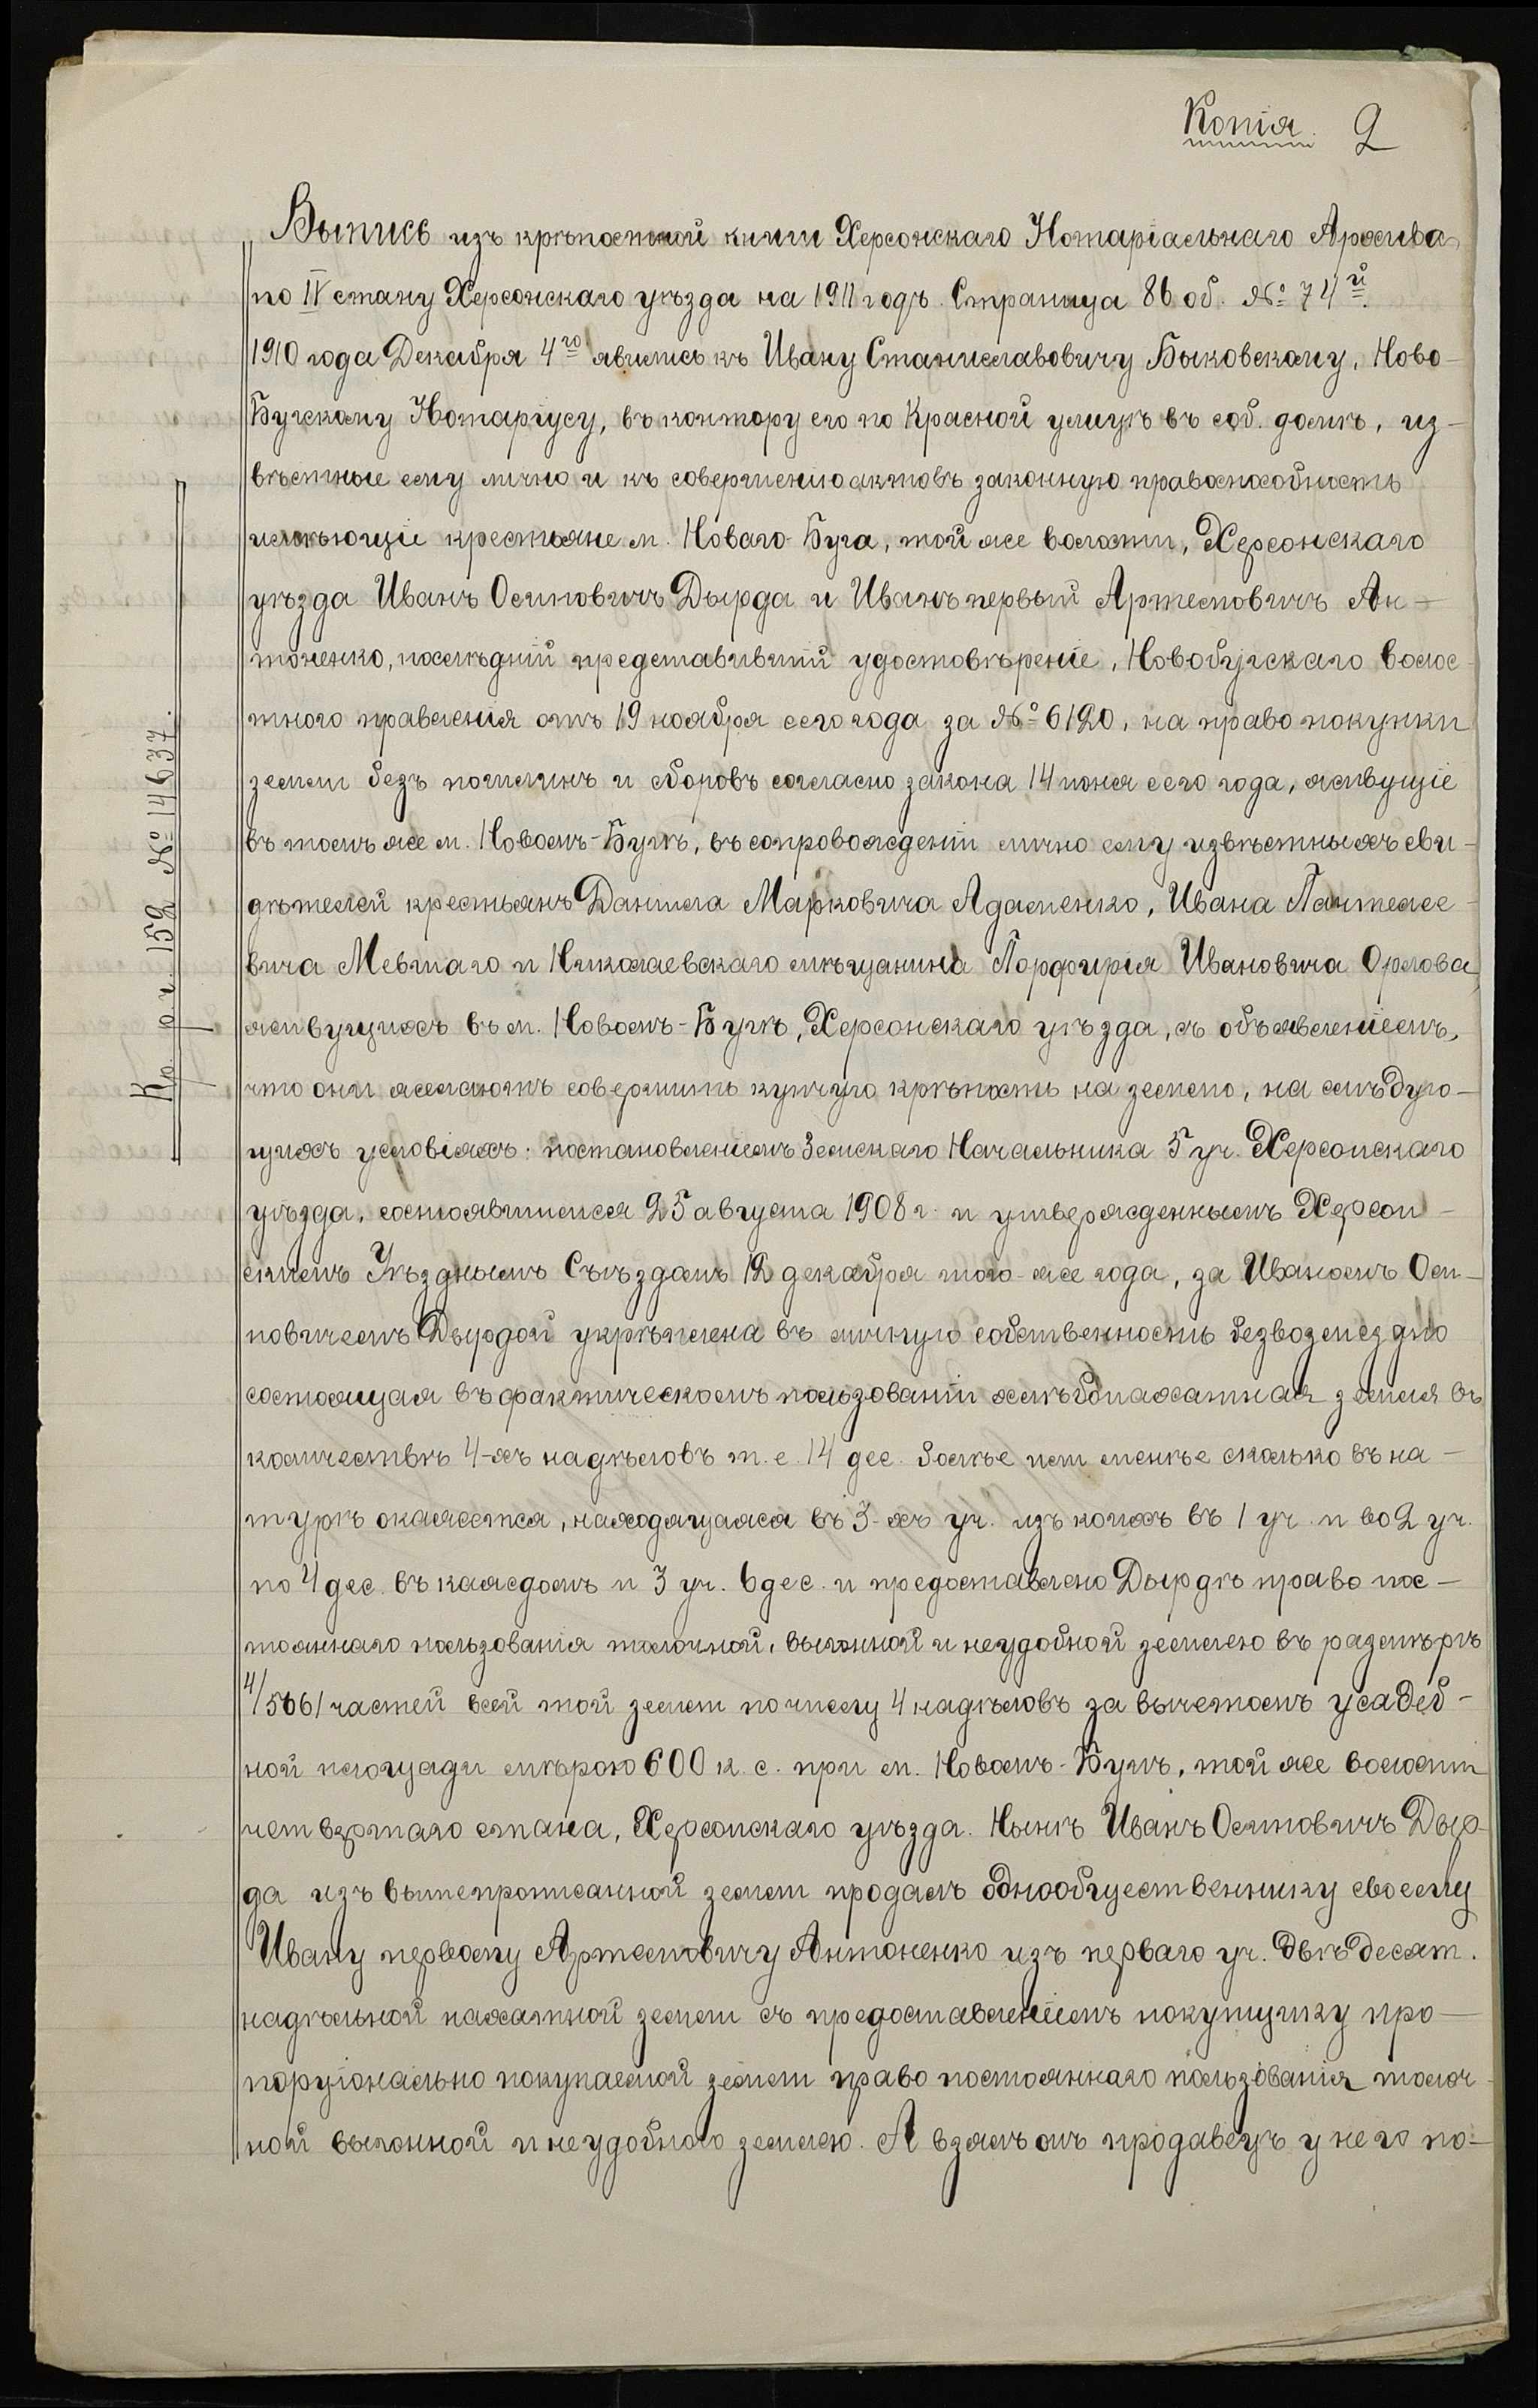 Копія. 2
Выпись изъ крѣпостной книги Херсонскаго Нотаріальнаго Архива
по IV стану Херсонскаго уѣзда на 1911 годъ. Страница 86 об. № 74й.
1910 года Декабря 4го явились къ Ивану Станиславовичу Быковскому, Ново-
Бугскому Нотаріусу, въ контору его по Красной улицѣ въ соб. домѣ, из-
вѣстные ему лично и къ совершенію актовъ законную правоспособность
имѣющіе крестьяне м. Новаго-Буга, той же волости, Херсонскаго
уѣзда Иванъ Осиповичъ Дырда и Иванъ первый Артемовичъ Ан-
тоненко, послѣдній представившій удостовѣреніе, Новобугскаго волос-
тного правленія отъ 19 ноября сего года за № 6120, на право покупки
земли безъ пошлинъ и сборовъ согласно закона 14 іюня сего года, живущіе
въ томъ же м. Новомъ-Бугѣ, въ сопровожденіи лично ему извѣстныхъ сви-
дѣтелей крестьянъ Данила Марковича Адаменко, Ивана Пантелее-
вича Мевшаго и Николаевскаго мѣщанина Порфирія Ивановича Орлова,
живущихъ въ м. Новомъ-Бугѣ, Херсонскаго уѣзда, съ объявленіемъ,
что они желаютъ совершить купчую крѣпость на землю, на слѣдую-
щихъ условіяхъ: постановленіемъ Земскаго Начальника 5 уч. Херсонскаго
уѣзда, состоявшимся 25 августа 1908 г. и утвержденнымъ Херсон-
скимъ Уѣзднымъ Съѣздомъ 12 декабря того-же года, за Иваномъ Оси-
повичемъ Дырдой укрѣплена въ личную собственность безвозмездно
состоящая въ фактическомъ пользованіи хлѣбопахатная земля въ
количествѣ 4-хъ надѣловъ т. е. 14 дес. болѣе или менѣе сколько въ на-
турѣ окажется, находящаяся въ 3-хъ уч. изъ коихъ въ 1 уч. и во 2 уч.
по 4 дес. въ каждомъ и 3 уч. 6 дес. и предоставлено Дырдѣ право пос-
тояннаго пользованія толочной, выгонной и неудобной землею въ размѣрѣ
4/5061 частей всей той земли по числу 4 надѣловъ за вычетомъ усадеб-
ной площади мѣрою 600 к. с. при м. Новомъ-Бугѣ, той же волости
четвертаго стана, Херсонскаго уѣзда. Нынѣ Иванъ Осиповичъ Дыр-
да изъ вышепрописанной земли продалъ однообщественнику своему
Ивану первому Артемовичу Антоненко изъ перваго уч. двѣ десят.
надѣльной пахатной земли съ предоставленіемъ покупщику про-
порціонально покупаемой земли право постояннаго пользованія толоч-
ной выгонной и неудобною землею. А взялъ онъ продавецъ у него по-
Кр. ю. ч. 152 № 14637.